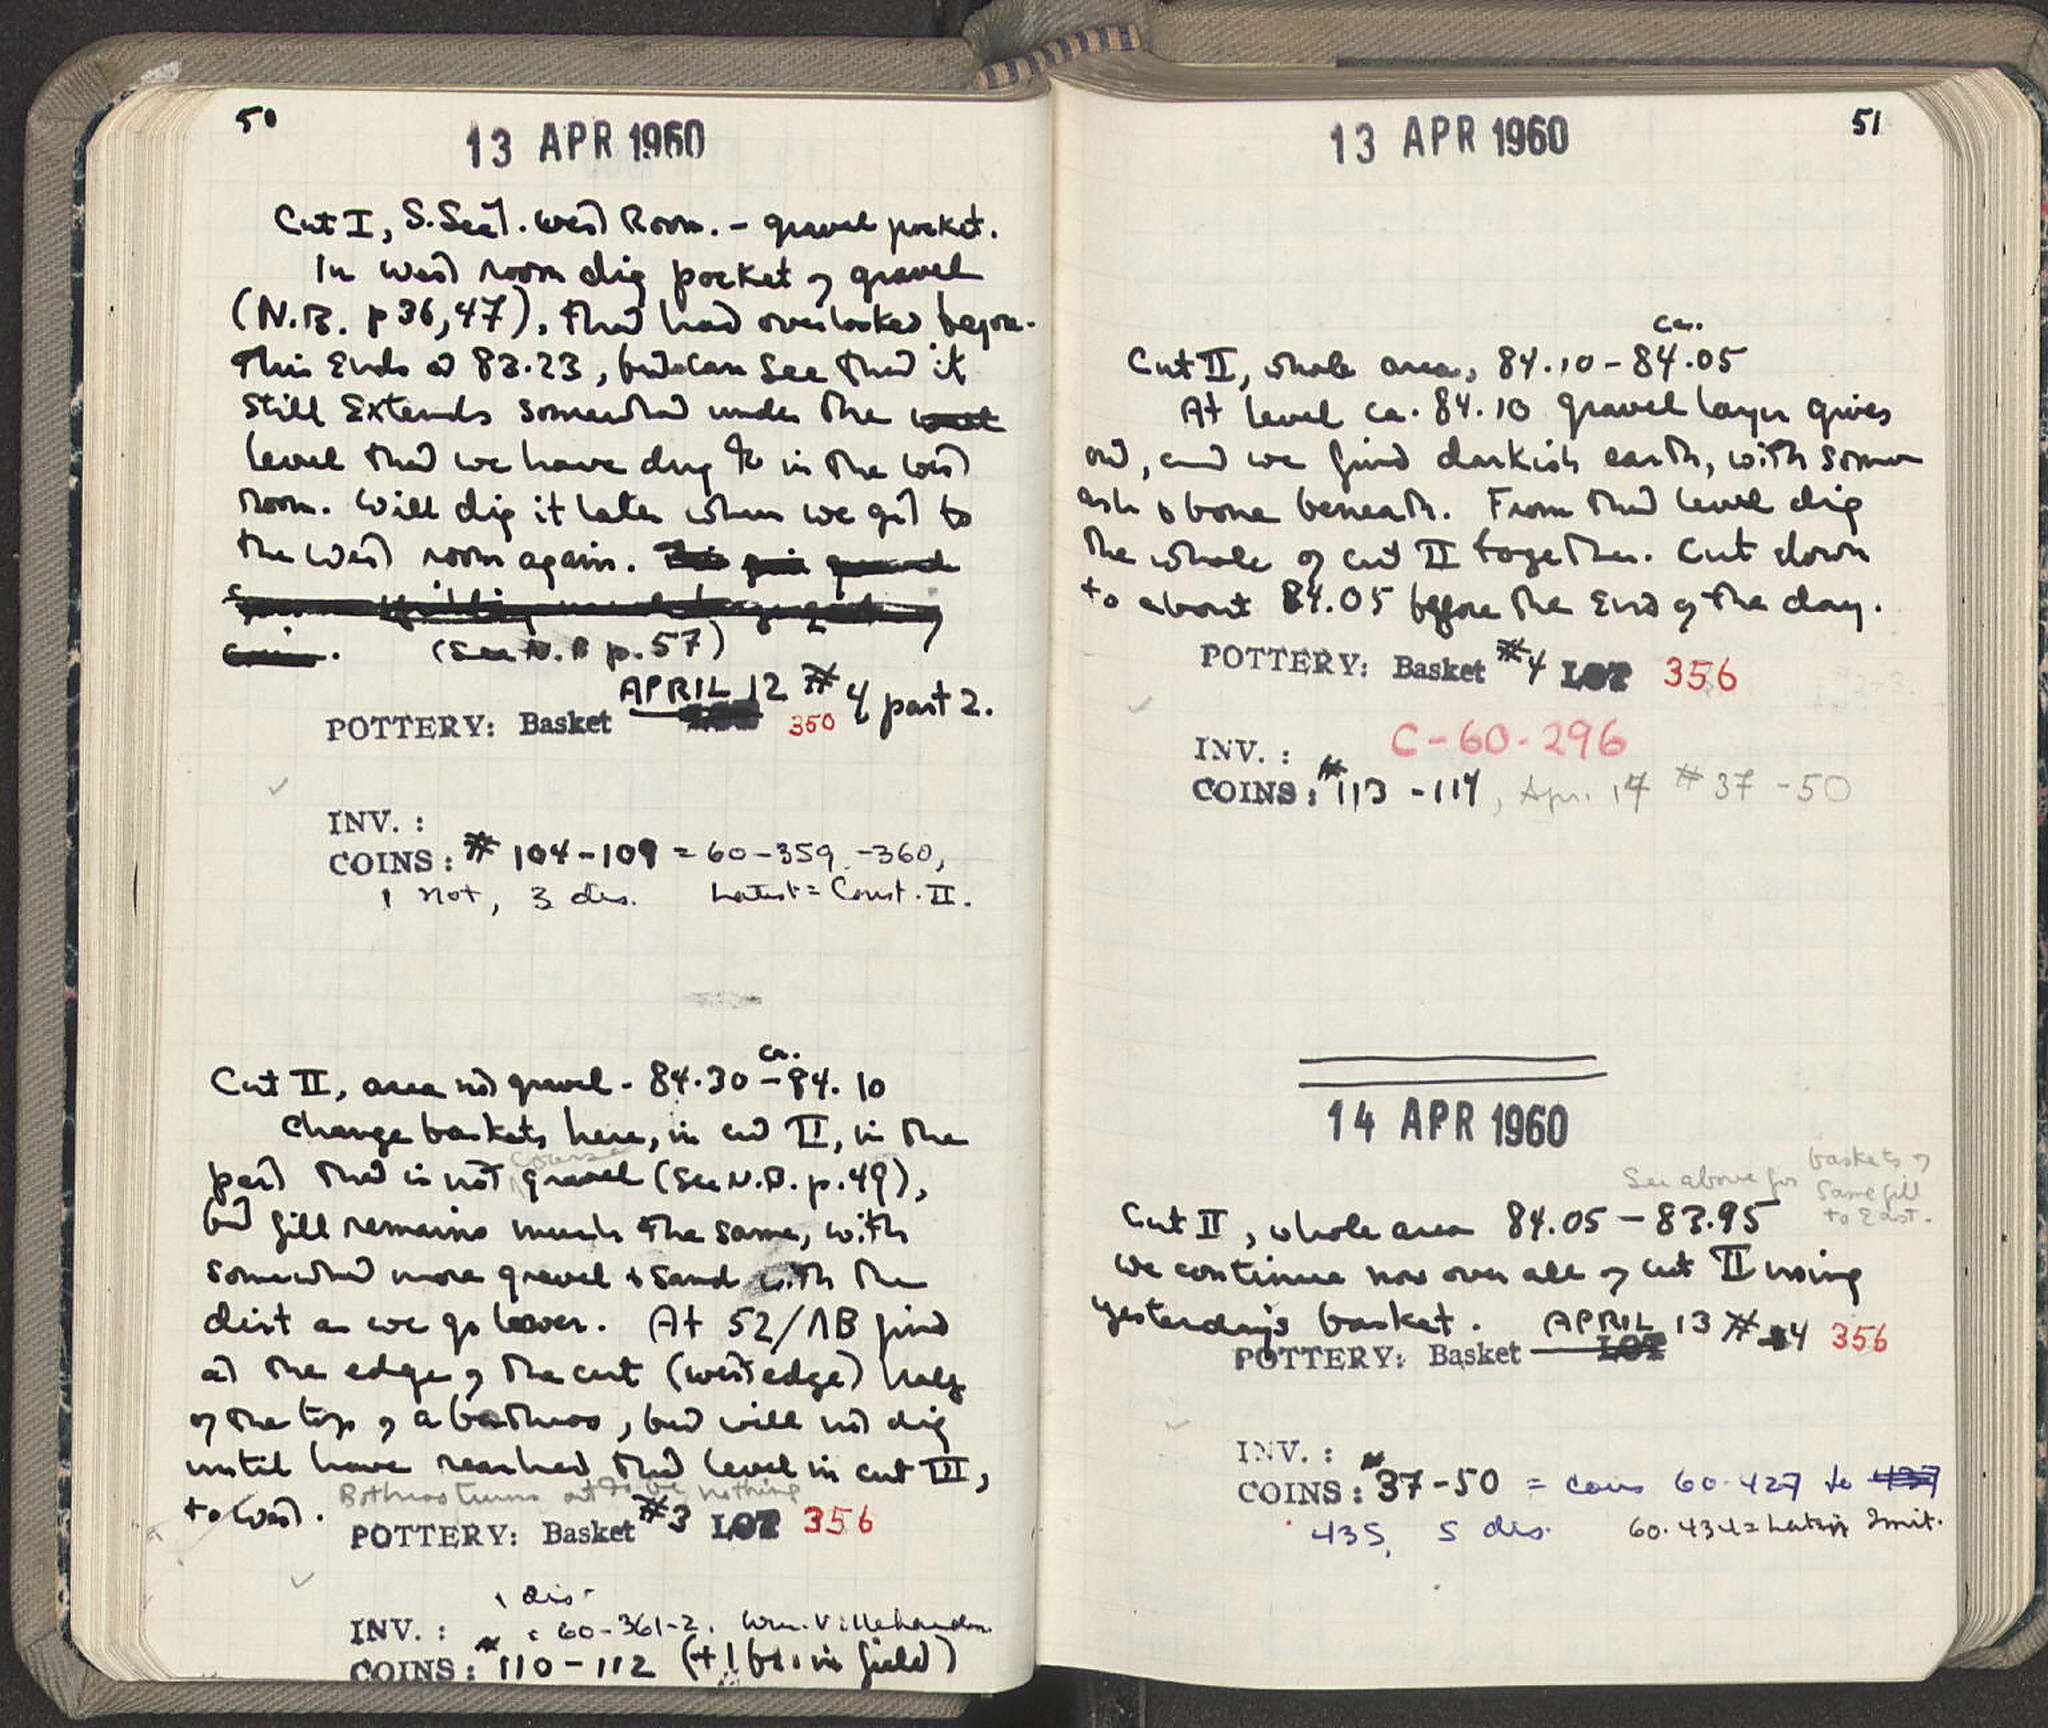 50
13 APR 1960
Cut I, S. Sect. West Room. - gravel pocket.
In West room dig pocket of gravel
(N.B. p 36, 47), that had overlooked before.
This Ends at 83.23, but can See that it
Still Extends somewhat under the west
level that we have dug to in the West
room. Will dig it later when we get to
the West room again.
(See N.B p. 57)
APRIL 12 # 4 part 2.
POTTERY: Basket LOT 350
INV. :
COINS: # 104-109 = 60-359, -360,
1 not, 3 dis. Latest = Const. II.
Cut II, area not gravel - 84.30 - ca. 84.10
Change baskets here, in cut II, in the
part that is not coarse gravel (See N.B. p. 49),
but fill remains much the same, with
somewhat more gravel & sand with the
dirt as we go lower. At 52/ΛB find
at the edge of the cut (west edge) half
of the top of a bothros, but will not dig
until have reached that level in cut III,
to West. Bothros turns out to be nothing
POTTERY: Basket #3 LOT 356
1 dis
INV. : = 60-361-2. Wm. Villehardouin.
COINS: # 110-112 (+1 bt. in field)
51
13 APR 1960
Cut II, whole area, 84.10 - ca. 84.05
At level ca. 84.10 gravel layer gives
out, and we find darkish earth, with some
ash & bone beneath. From that level dig
the whole of cut II together. Cut down
to about 84.05 before the End of the day.
POTTERY: Basket #4 LOT 356
INV. : C-60-296
COINS: # 113-114, Apr. 14 # 37-50
14 APR 1960
See above for baskets of
same fill
to East.
Cut II, whole area 84.05 - 83.95
We continue now over all of cut II using
yesterday's basket. APRIL 13 # 4 356
POTTERY: Basket LOT
INV. :
COINS: # 37-50 = coins 60-427 to 437
435, 5 dis. 60-434 = Latin Imit.